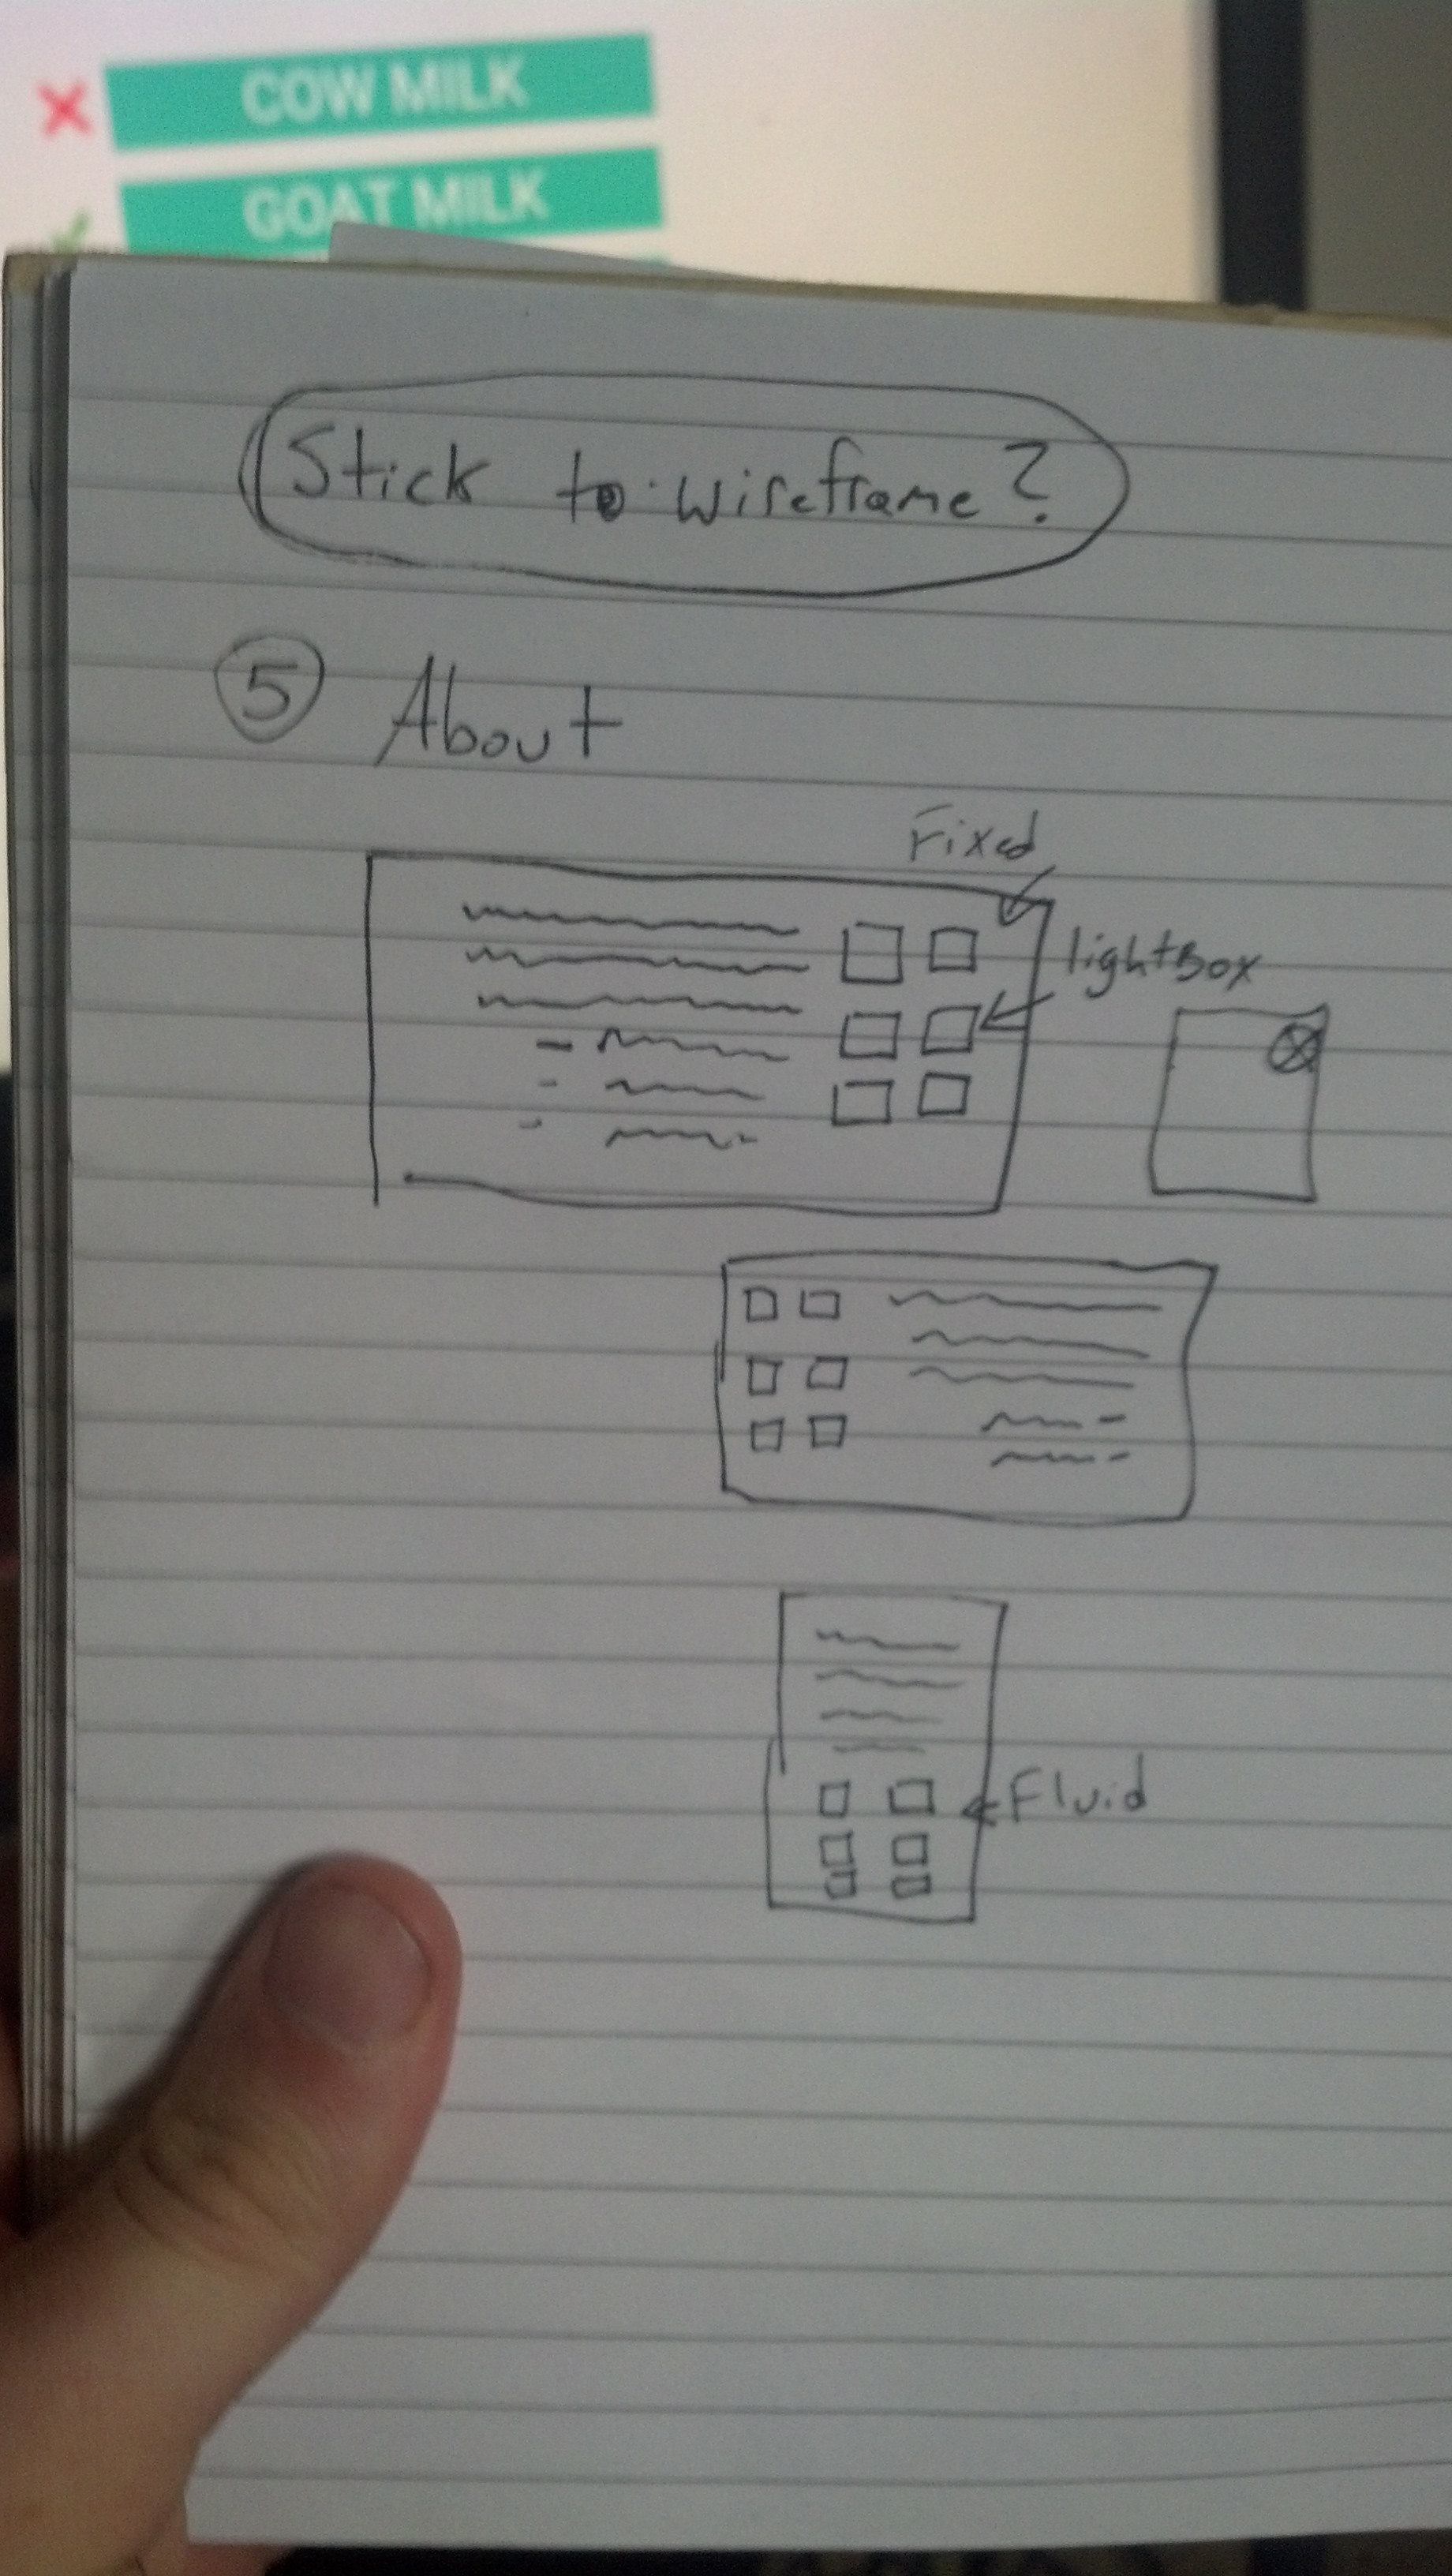 COW MILK
GOAT MILK
Stick to wireframe?
5 About
Fixed
lightBox
Fluid